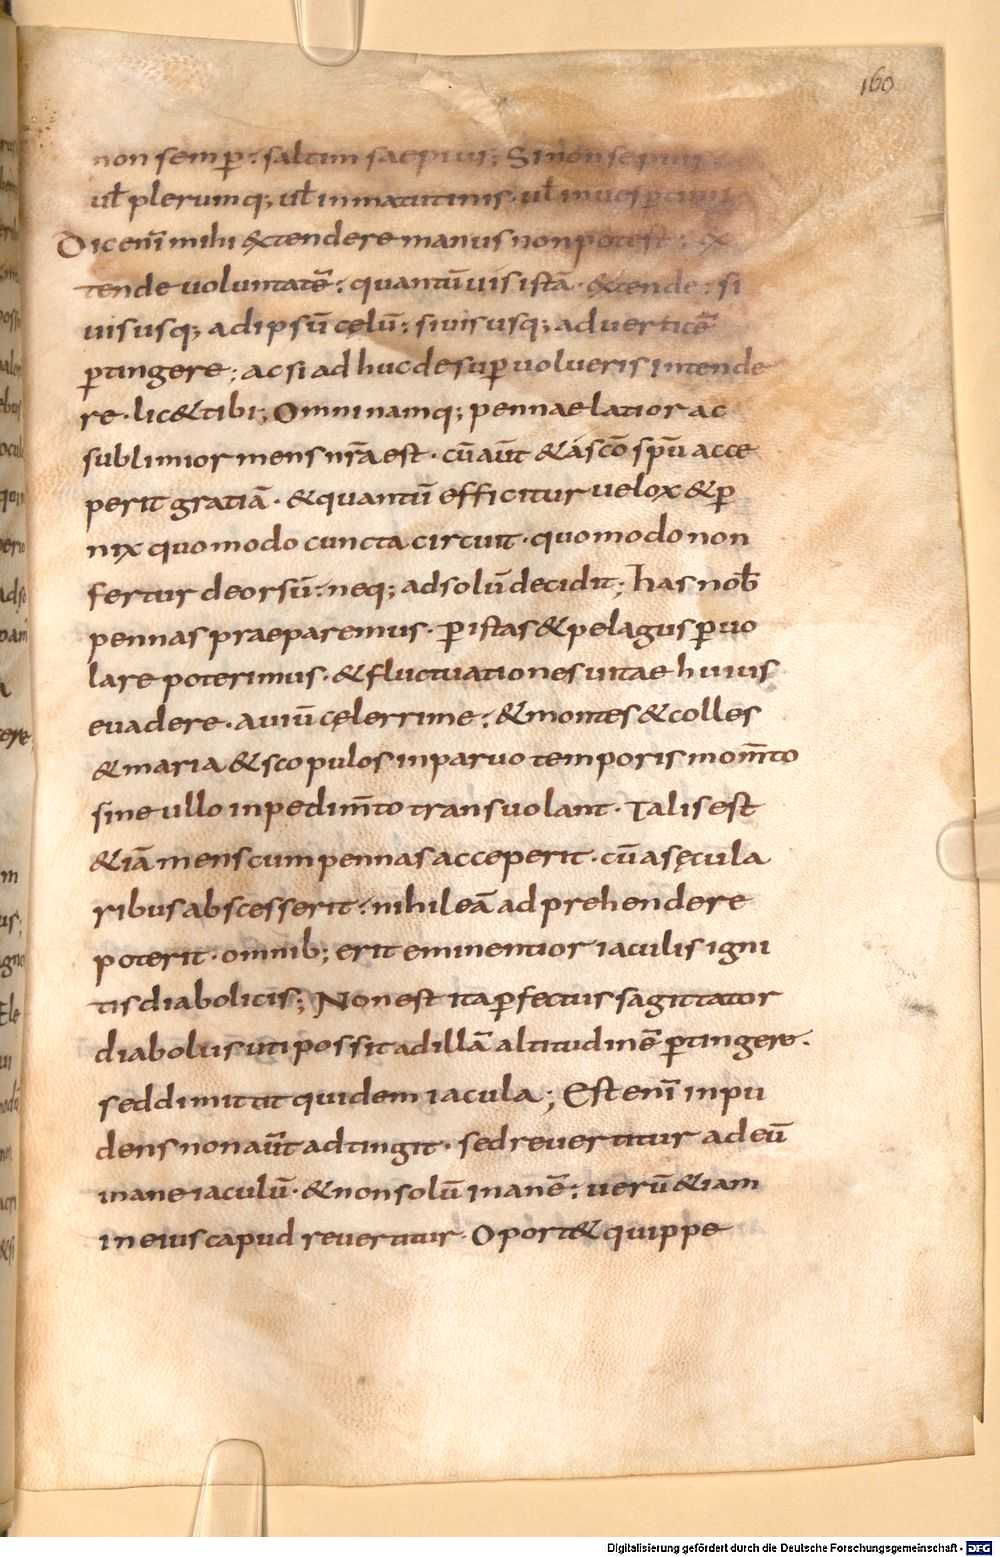 160
non semp̱: saltim saepius; Si non sepius
ut̄ plerumq; ut̄ in matutinis · ut̄ in uespertinis
Dic enī mihi &tendere manus non potest: ex
tende uoluntatē: quantū uis istā · extende: si
uis usq; ad ipsū cęlū: si uis usq; ad uerticē
p̱tingere; ac si adhuc desup̱ uolueris intende
re · lic& tibi; Omni namq; pennae latior ac
sublimior mens nr̄a est · cū aūt & a sc̄o sp̄u acce
perit gratiā · & quantū efficitur uelox & p̱
nix quomodo cuncta circuit · quomodo non
fertur deorsū: neq; ad solū decidit; has nob̄
pennas praeparemus · p̱ istas & pelagus p̱uo
lare poterimus · & fluctuationes uitae huius
euadere · auiū cęlerrime: & montes & colles
& maria & scopulos in paruo temporis mom̄to
sine ullo inpedim̄to transuolant · Talis est
& iā mens cum pennas acceperit · cū a sęcula
ribus abscesserit: nihil eā adprehendere
poterit · omnib; erit eminentior iaculis igni
tis diabolicis; Non est ita p̱fectus sagittator
diabolus uti possit ad illā altitudinē p̱tingere ·
sed dimittit quidem iacula; Est enī inpu
dens non aūt adtingit · sed reuertitur ad eū
inane iaculū · & non solū inanē: uerū &iam
in eius capud reuertitur · Oport& quippe
Digitalisierung gefördert durch die Deutsche Forschungsgemeinschaft - DFG